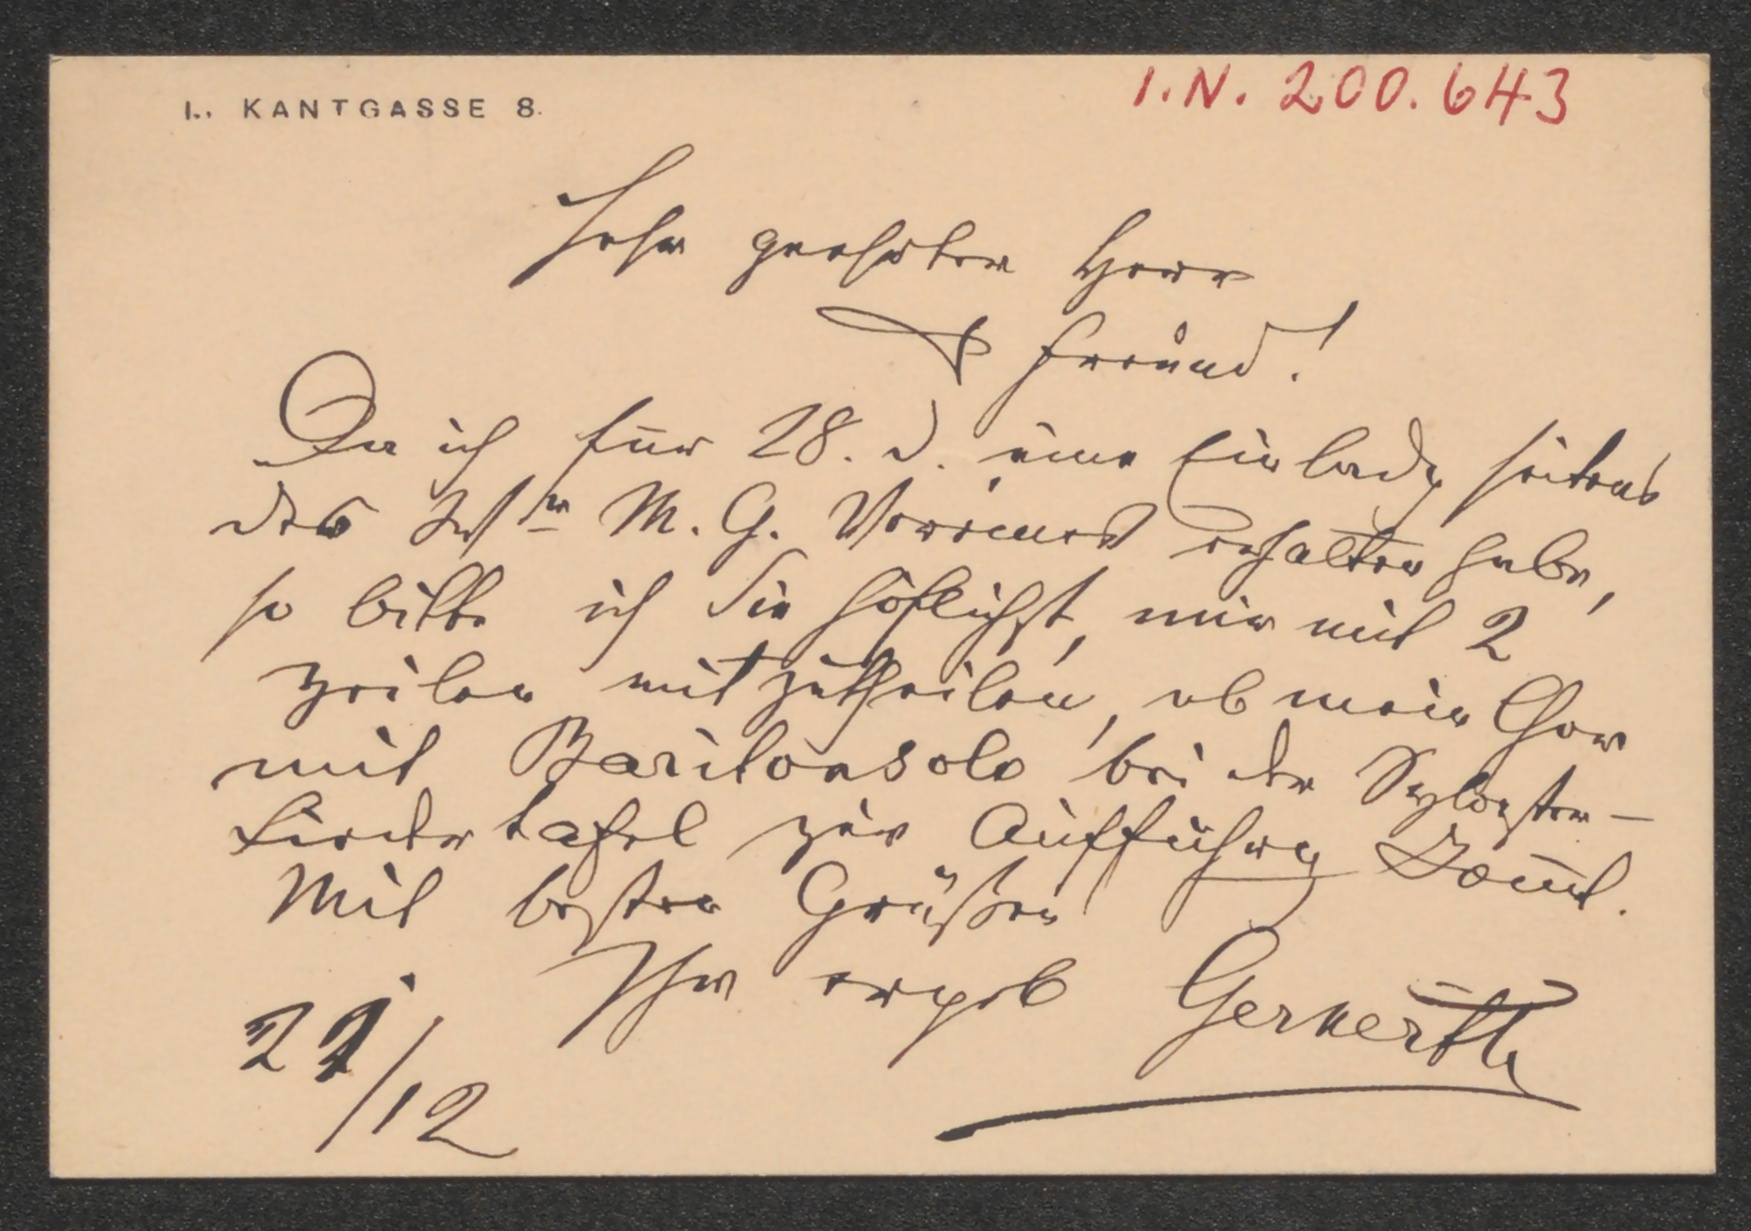 I., KANTGASSE 8.
I.N. 200.643
Sehr geehrter Herr
& Freund!
Da ich für 28. d. eine Einladg seitens
des Wr M. G. Vereines erhalten habe,
so bitte ich Sie höflichst, mir mit 2
Zeilen mitzutheilen, ob mein Chor
mit Baritonsolo bei der Sylvester-
Liedertafel zur Aufführg kom̅t.
Mit besten Grüßen
Ihr ergeb Gernerth
22/12